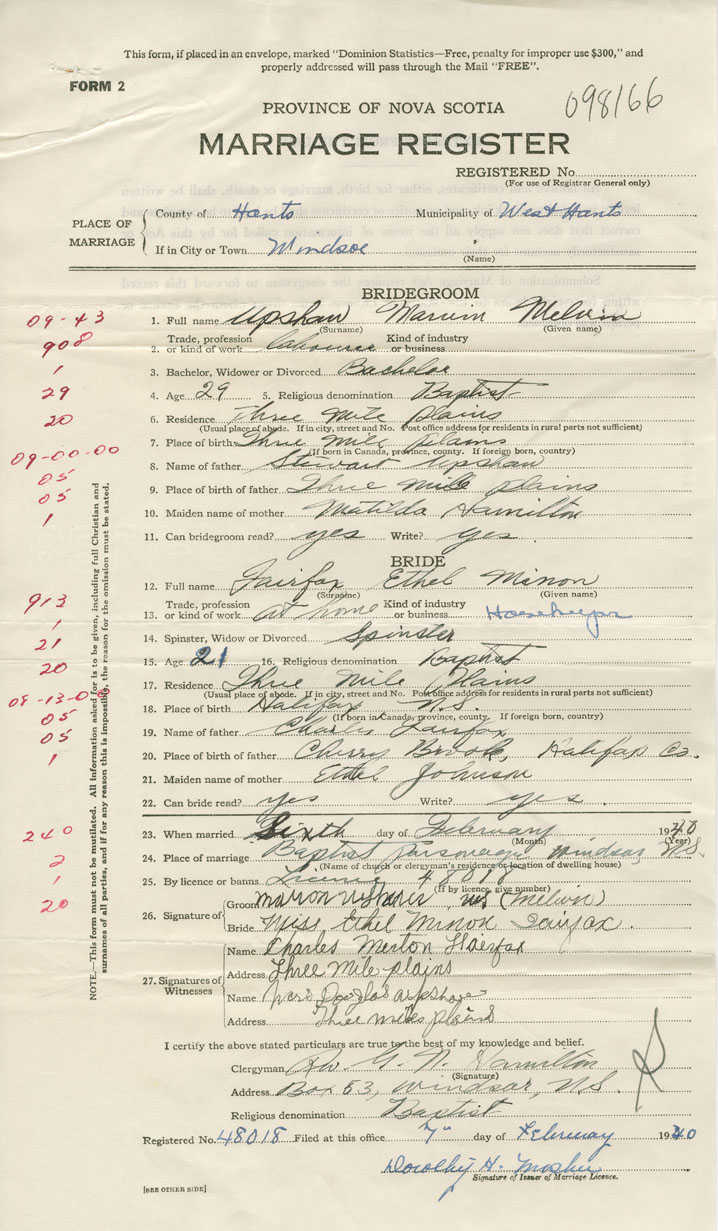 This form, if placed in an envelope, marked "Dominion Statistics—Free, penalty for improper use $300," and
properly addressed will pass through the Mail "FREE".
FORM 2
098166
PROVINCE OF NOVA SCOTIA
MARRIAGE REGISTER
REGISTERED No.
(For use of Registrar General only)
PLACE OF MARRIAGE
County of Hants Municipality of West Hants
If in City or Town Windsor
(Name)
BRIDEGROOM
09-43 1. Full name Upshaw Marvin Melvin
(Surname) (Given name)
908 2. Trade, profession or kind of work labourer Kind of industry or business
1 3. Bachelor, Widower or Divorced Bachelor
29 4. Age 29 5. Religious denomination Baptist
20 6. Residence Three Mile Plains
(Usual place of abode. If in city, street and No. Post office address for residents in rural parts not sufficient)
09-00-00 7. Place of birth Three Mile Plains
(If born in Canada, province, county. If foreign born, country)
05 8. Name of father Stewart Upshaw
05 9. Place of birth of father Three Mile Plains
1 10. Maiden name of mother Matilda Hamilton
11. Can bridegroom read? yes Write? yes.
BRIDE
12. Full name Fairfax Ethel Minon
(Surname) (Given name)
913 13. Trade, profession or kind of work at home Kind of industry or business Housekeeper
1 14. Spinster, Widow or Divorced Spinster
21 15. Age 21 16. Religious denomination Baptist
20 17. Residence Three Mile Plains
(Usual place of abode. If in city, street and No. Post office address for residents in rural parts not sufficient)
08-13-00 18. Place of birth Halifax N.S.
(If born in Canada, province, county. If foreign born, country)
05 19. Name of father Charles Fairfax
05 20. Place of birth of father Cherry Brook, Halifax Co.
1 21. Maiden name of mother Ethel Johnson
22. Can bride read? yes Write? yes.
240 23. When married Sixth day of February 1940
(Month) (Year)
2 24. Place of marriage Baptist Parsonage Windsor, N.S.
(Name of church or clergyman's residence or location of dwelling house)
1 25. By licence or banns Licence 48018
(If by licence, give number)
20 26. Signature of
Groom (Melvin)
Bride Miss Ethel Minon Fairfax.
27. Signatures of Witnesses
Name Charles Merton Fairfax
Address Three Mile plains
Name Mrs Douglas Upshaw
Address Three miles plains
I certify the above stated particulars are true to the best of my knowledge and belief.
Clergyman Rev. G. N. Hamilton
(Signature)
Address Box 53, Windsor, N.S.
Religious denomination Baptist
Registered No. 48018 Filed at this office 7" day of February 1940
Dorothy H. Mosher
Signature of Issuer of Marriage Licence.
[SEE OTHER SIDE]
NOTE.—This form must not be mutilated. All information asked for is to be given, including full Christian and
surnames of all parties, and if for any reason this is impossible, the reason for the omission must be stated.